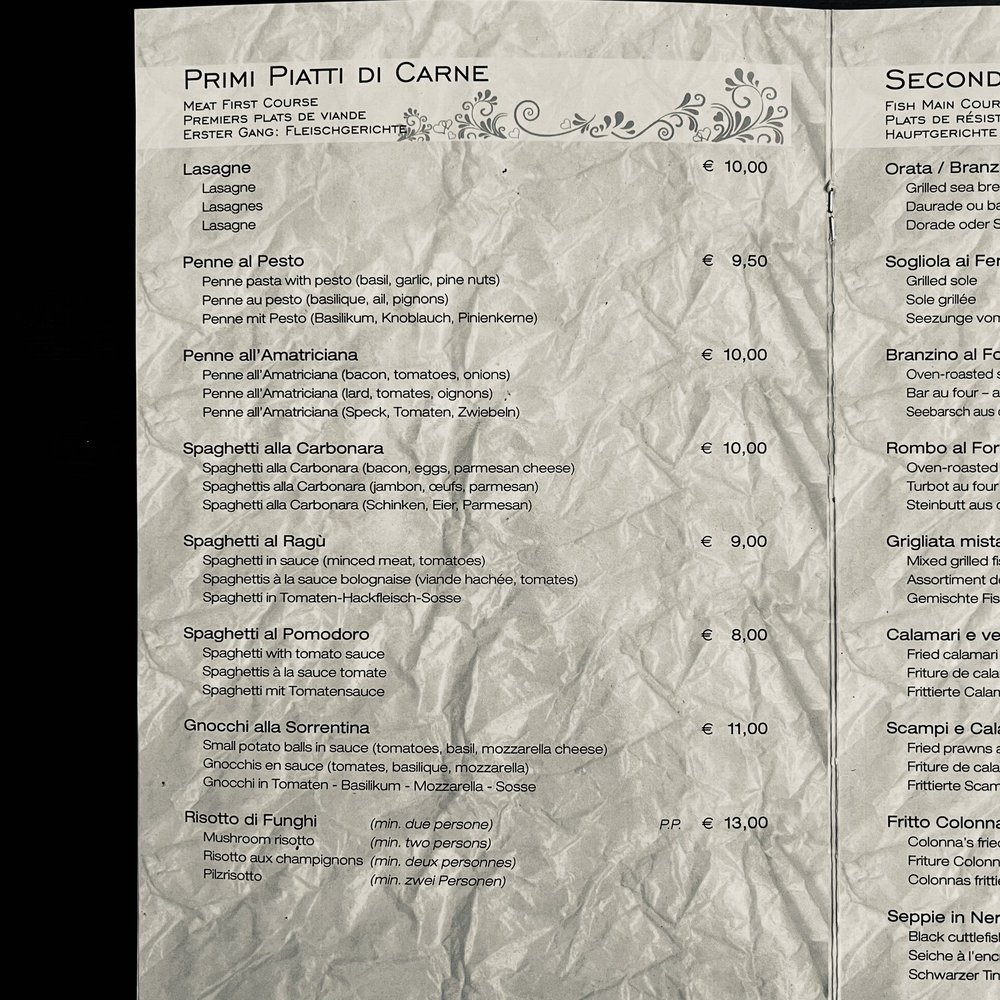 Primi Piatti di Carne
Meat First Course
Premiers plats de viande
Erster Gang: Fleischgerichte
Lasagne € 10,00
Lasagne
Lasagnes
Lasagne
Penne al Pesto € 9,50
Penne pasta with pesto (basil, garlic, pine nuts)
Penne au pesto (basilique, ail, pignons)
Penne mit Pesto (Basilikum, Knoblauch, Pinienkerne)
Penne all'Amatriciana € 10,00
Penne all'Amatriciana (bacon, tomatoes, onions)
Penne all'Amatriciana (lard, tomates, oignons)
Penne all'Amatriciana (Speck, Tomaten, Zwiebeln)
Spaghetti alla Carbonara € 10,00
Spaghetti alla Carbonara (bacon, eggs, parmesan cheese)
Spaghettis alla Carbonara (jambon, œufs, parmesan)
Spaghetti alla Carbonara (Schinken, Eier, Parmesan)
Spaghetti al Ragù € 9,00
Spaghetti in sauce (minced meat, tomatoes)
Spaghettis à la sauce bolognaise (viande hachée, tomates)
Spaghetti in Tomaten-Hackfleisch-Sosse
Spaghetti al Pomodoro € 8,00
Spaghetti with tomato sauce
Spaghettis à la sauce tomate
Spaghetti mit Tomatensauce
Gnocchi alla Sorrentina € 11,00
Small potato balls in sauce (tomatoes, basil, mozzarella cheese)
Gnocchis en sauce (tomates, basilique, mozzarella)
Gnocchi in Tomaten - Basilikum - Mozzarella - Sosse
Risotto di Funghi (min. due persone) P.P. € 13,00
Mushroom risotto (min. two persons)
Risotto aux champignons (min. deux personnes)
Pilzrisotto (min. zwei Personen)
Second
Fish Main Cour
Plats de résist
Hauptgerichte
Orata / Branz
Grilled sea bre
Daurade ou ba
Dorade oder S
Sogliola ai Fer
Grilled sole
Sole grillée
Seezunge vom
Branzino al Fo
Oven-roasted s
Bar au four – a
Seebarsch aus d
Rombo al For
Oven-roasted
Turbot au four
Steinbutt aus d
Grigliata mista
Mixed grilled fis
Assortiment de
Gemischte Fis
Calamari e ve
Fried calamari
Friture de cala
Frittierte Calam
Scampi e Cala
Fried prawns a
Friture de cala
Frittierte Scam
Fritto Colonna
Colonna's fried
Friture Colonn
Colonnas frittie
Seppie in Ner
Black cuttlefish
Seiche à l'enc
Schwarzer Tin